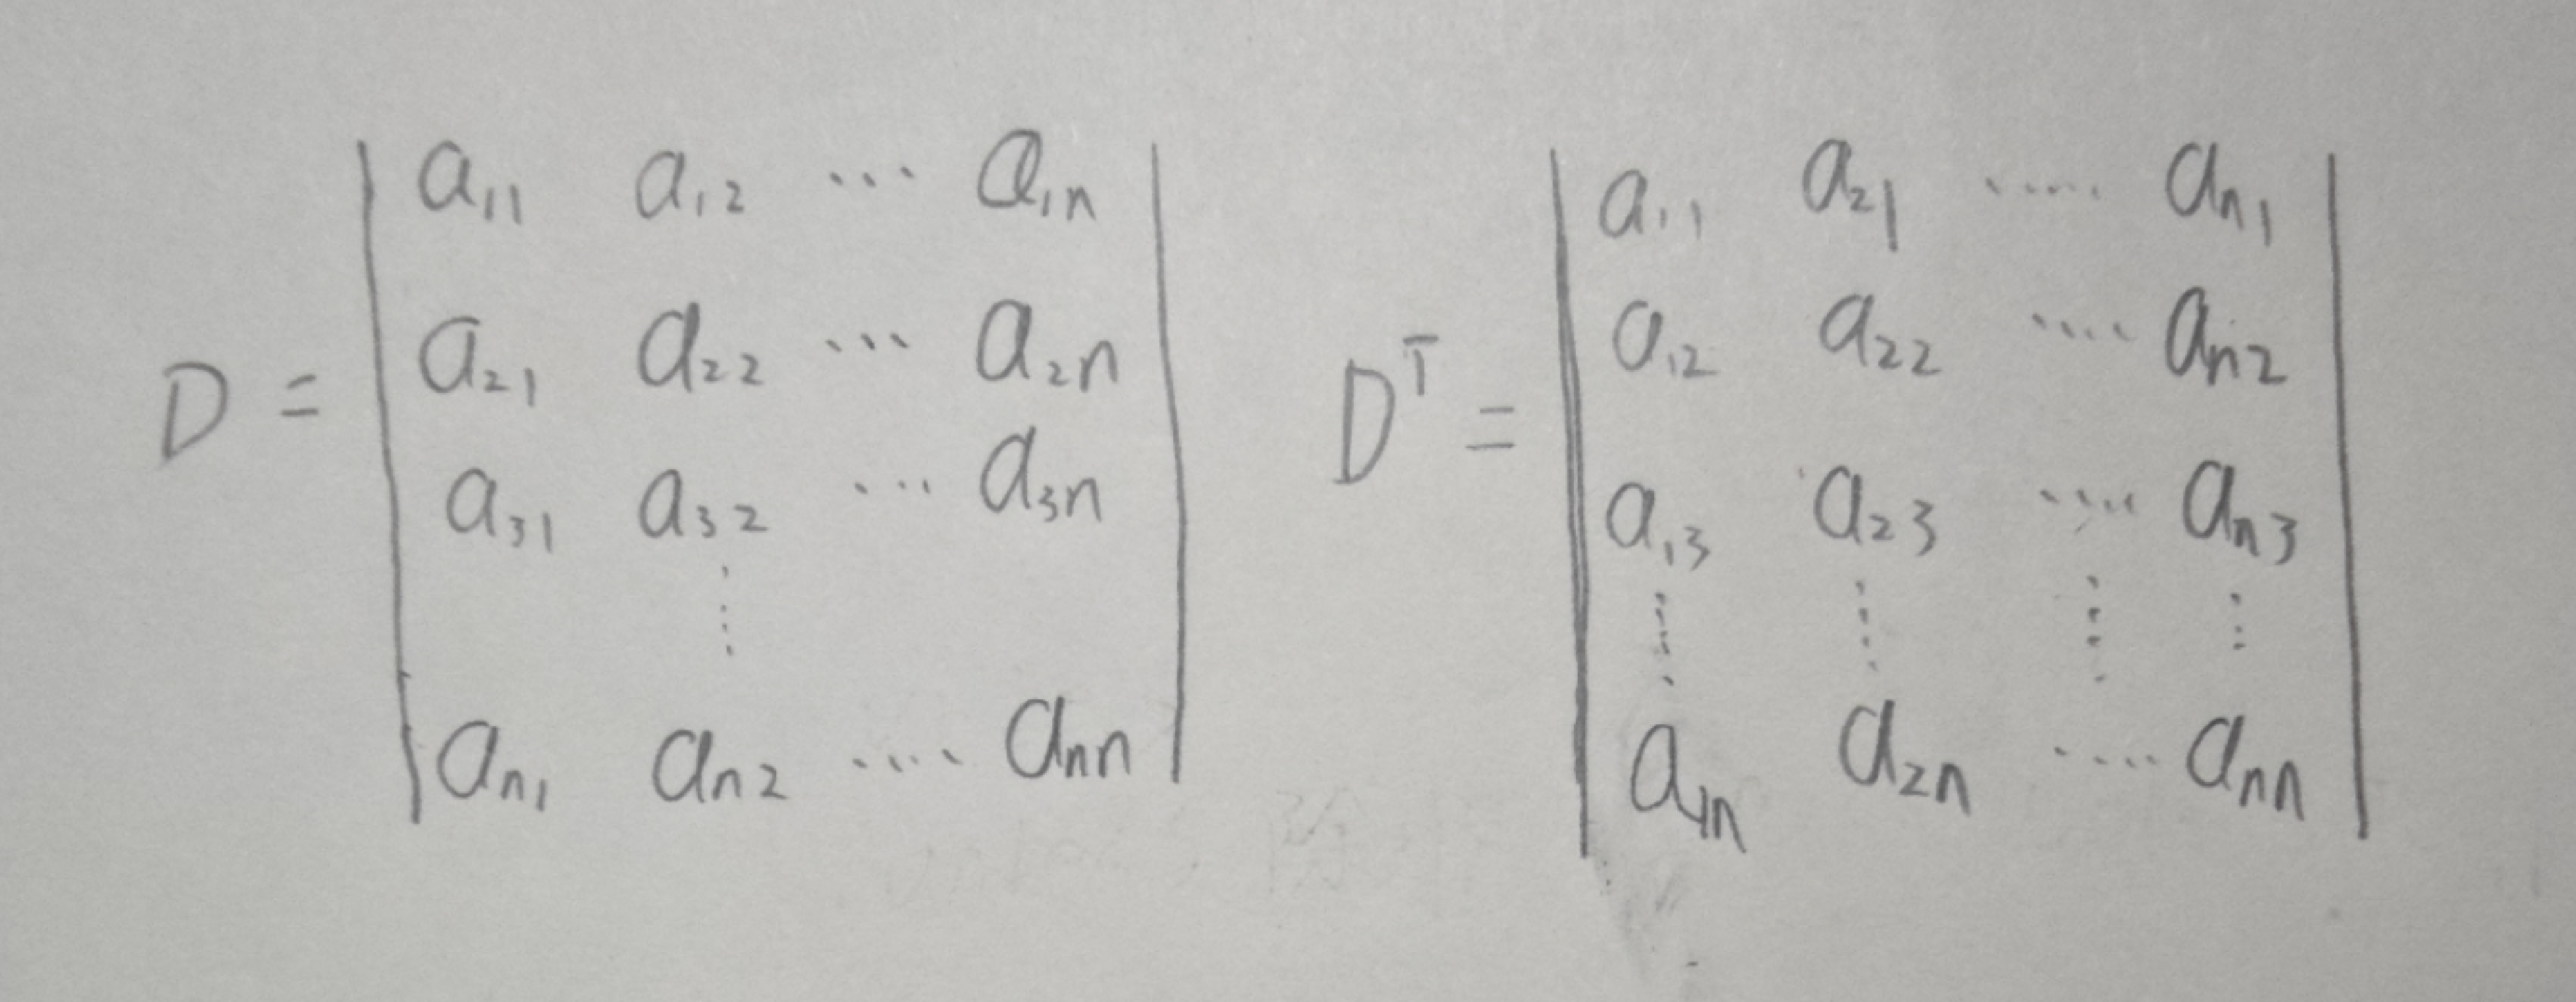 D = | a₁₁ a₁₂ ··· a₁ₙ |
| a₂₁ a₂₂ ··· a₂ₙ |
| a₃₁ a₃₂ ··· a₃ₙ |
⋮
| aₙ₁ aₙ₂ ···· aₙₙ |
Dᵀ = | a₁₁ a₂₁ ····· aₙ₁ |
| a₁₂ a₂₂ ···· aₙ₂ |
| a₁₃ a₂₃ ···· aₙ₃ |
⋮ ⋮ ⋮ ⋮
| a₁ₙ a₂ₙ ····· aₙₙ |